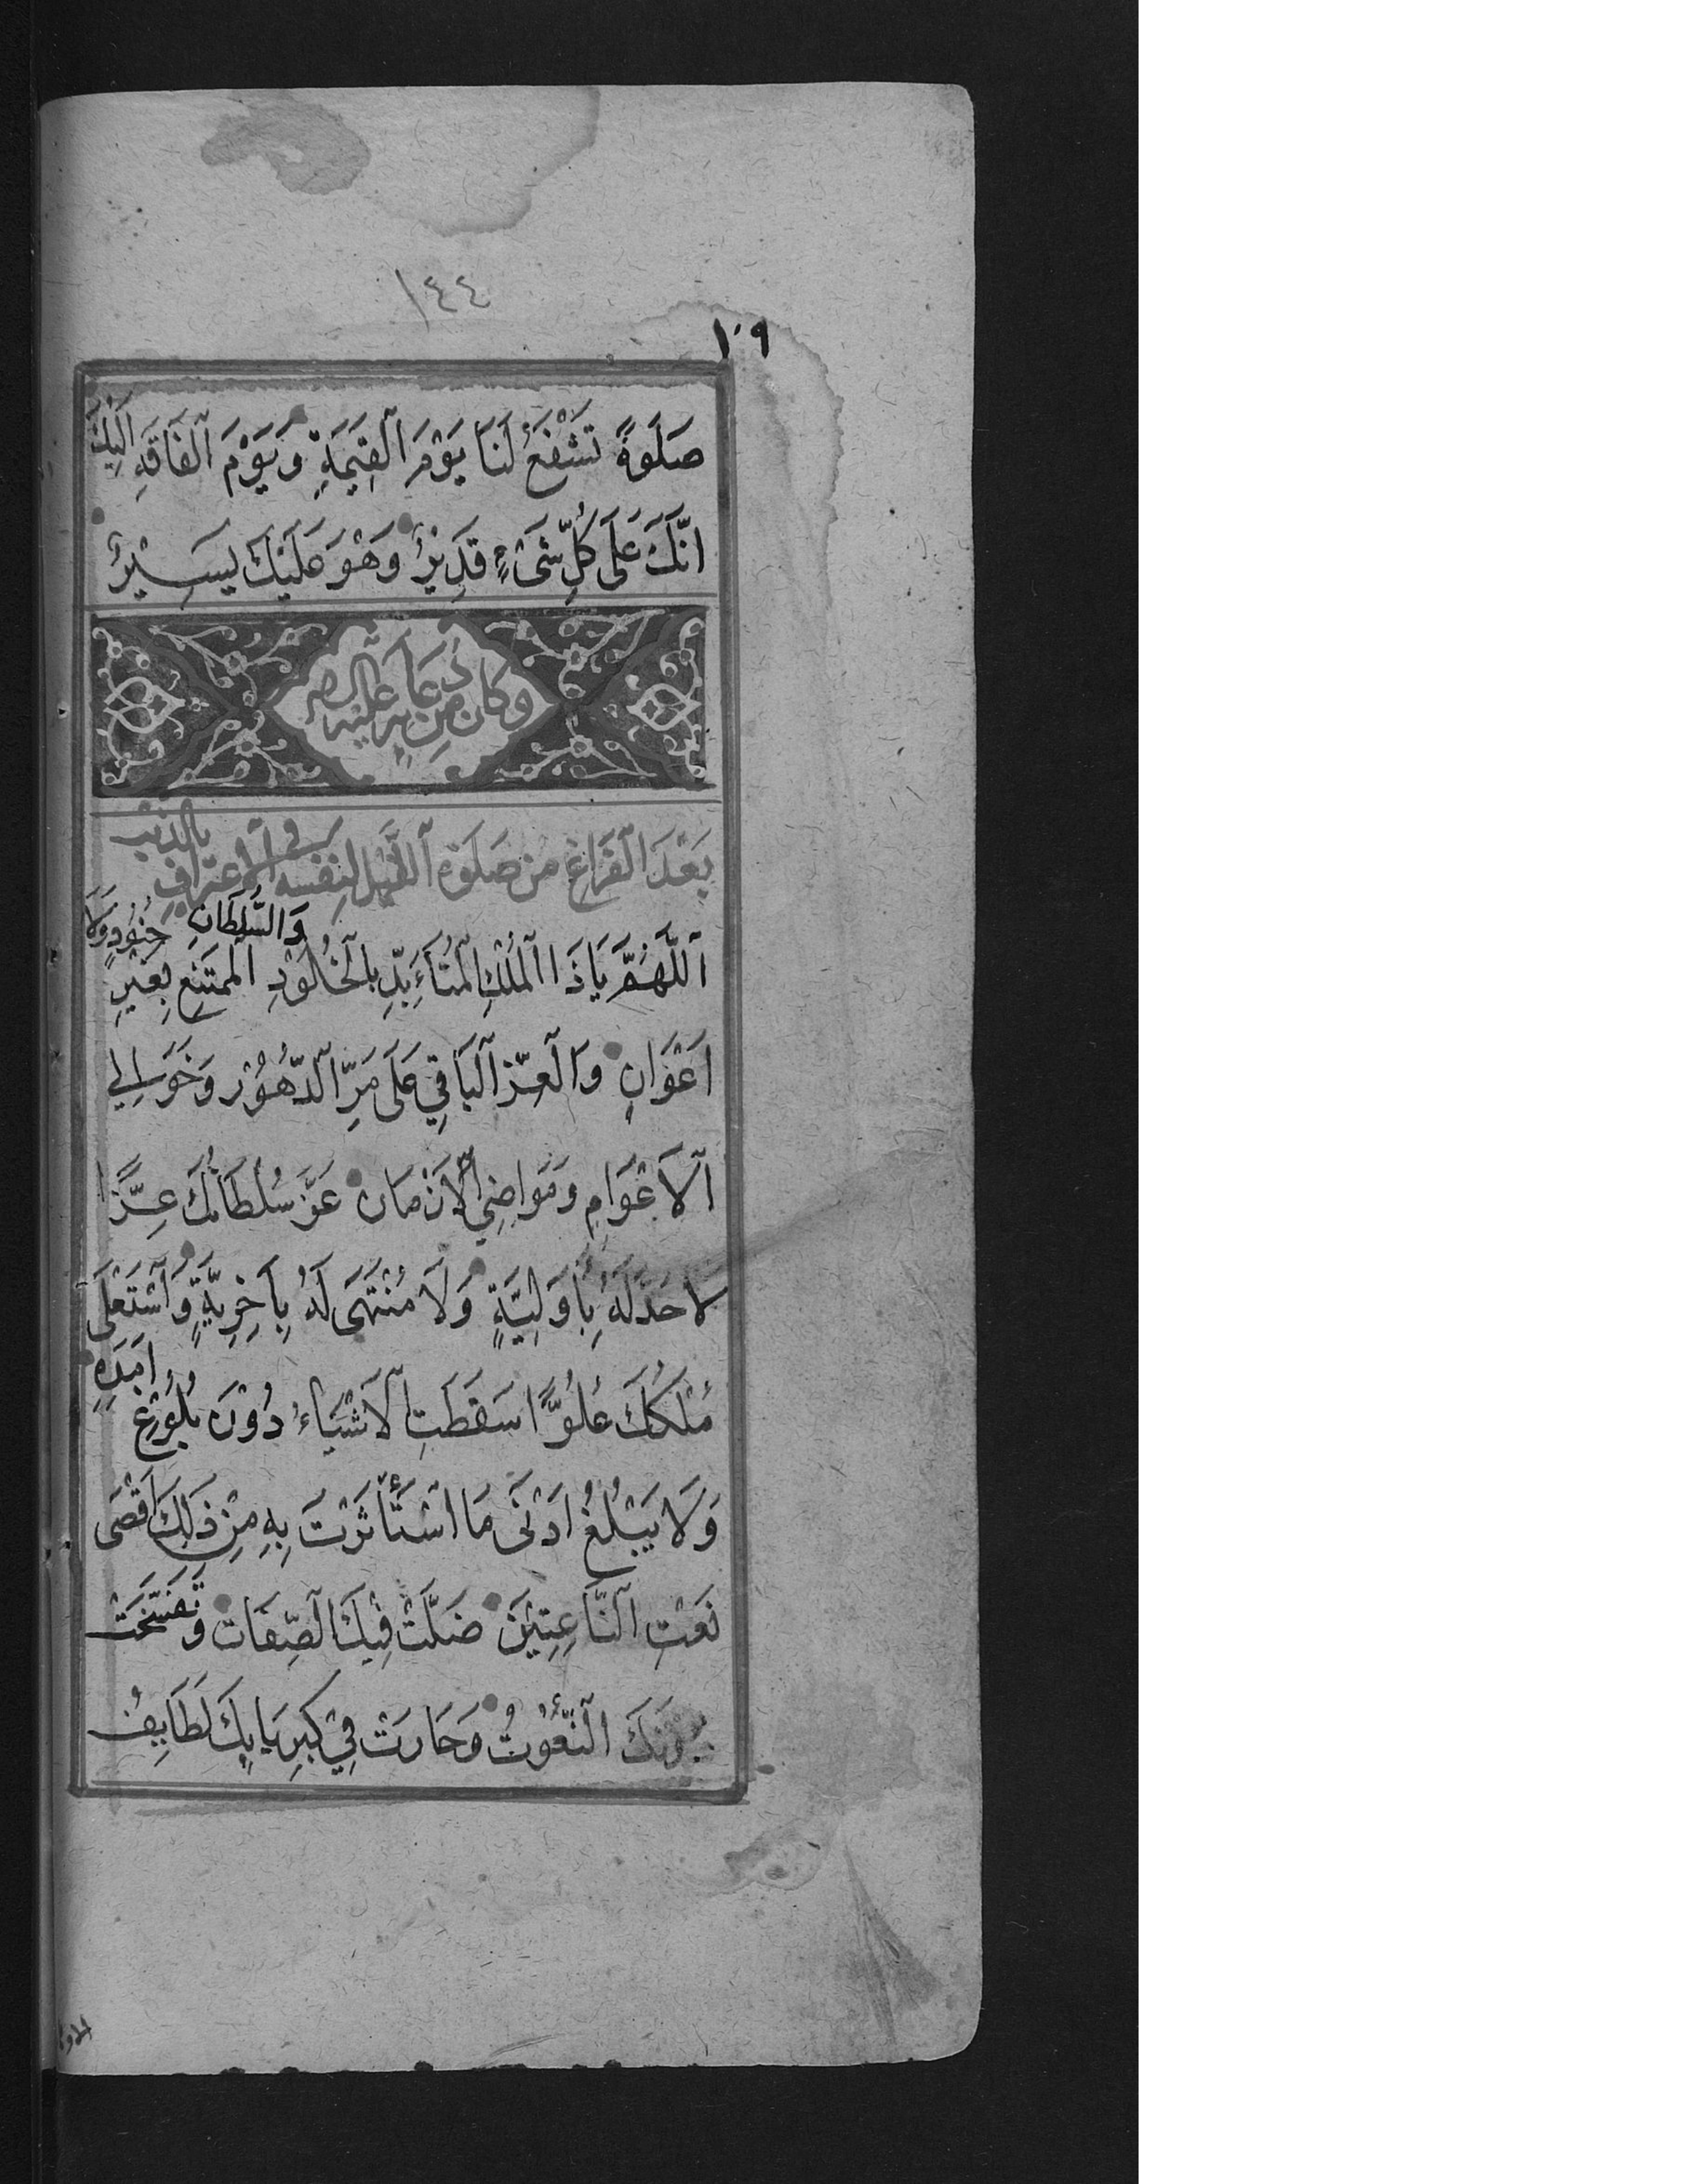 ١٤٤
١٠٩
صَلَوةً تَشْفَعُ لَنَا يَوْمَ الْقِيٰمَةِ وَيَوْمَ الْفَاقَةِ اِلَيْكَ
اِنَّكَ عَلَى كُلِّ شَىْءٍ قَدِيْرٌ وَهُوَ عَلَيْكَ يَسِيْرٌ
وَكَانَ مِنْ دُعَآئِهِ عَلَيْهِ السلم
بَعْدَ الْفَرَاغِ مِنْ صَلَوةِ اللَّيْلِ لِنَفْسِهِ فِي الْاِعْتِرَافِ بِالذَّنْبِ
اَللّٰهُمَّ يَا ذَا الْمُلْكِ الْمُتَأَبِّدِ بِالْخُلُوْدِ وَالسُّلْطَانِ الْمُمْتَنِعِ بِغَيْرِ جُنُوْدٍ وَلَا
اَعْوَانٍ وَالْعِزِّ الْبَاقِي عَلَى مَرِّ الدُّهُوْرِ وَخَوَالِي
الْاَعْوَامِ وَمَوَاضِي الْاَزْمَانِ عَزَّ سُلْطَانُكَ عِزًّا
لَا حَدَّ لَهُ بِأَوَّلِيَّةٍ وَلَا مُنْتَهَى لَهُ بِآخِرِيَّةٍ وَاسْتَعْلَى
مُلْكُكَ عُلُوًّا سَقَطَتِ الْاَشْيَاءُ دُوْنَ بُلُوْغِ اَمَدِهِ
وَلَا يَبْلُغُ اَدْنَى مَا اسْتَأْثَرْتَ بِهِ مِنْ ذَلِكَ اَقْصَى
نَعْتِ النَّاعِتِيْنَ ضَلَّتْ فِيْكَ الصِّفَاتُ وَتَفَسَّخَتْ
دُوْنَكَ النُّعُوْتُ وَحَارَتْ فِيْ كِبْرِيَايِكَ لَطَايِفُ